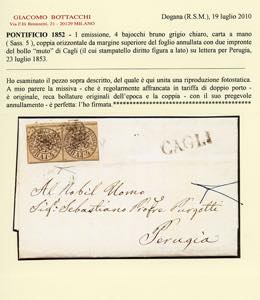 GIACOMO BOTTACCHI
Via F.lli Bronzetti, 21 - 20129 MILANO
Dogana (R.S.M.), 19 luglio 2010
PONTIFICIO 1852 - I emissione, 4 bajocchi bruno grigio chiaro, carta a mano
( Sass. 5 ), coppia orizzontale da margine superiore del foglio annullata con due impronte
del bollo "muto" di Cagli (il cui stampatello diritto figura a lato) su lettera per Perugia,
23 luglio 1853.
Ho esaminato il pezzo sopra descritto, del quale è qui unita una riproduzione fotostatica.
A mio parere la missiva - che è regolarmente affrancata in tariffa di doppio porto -
è originale, reca bollature originali dell'epoca e la coppia - con il suo pregevole
annullamento - è perfetta: l'ho firmata
CAGLI
Al Nobil Uomo
Sig. Sebastiano Purgotti
Perugia